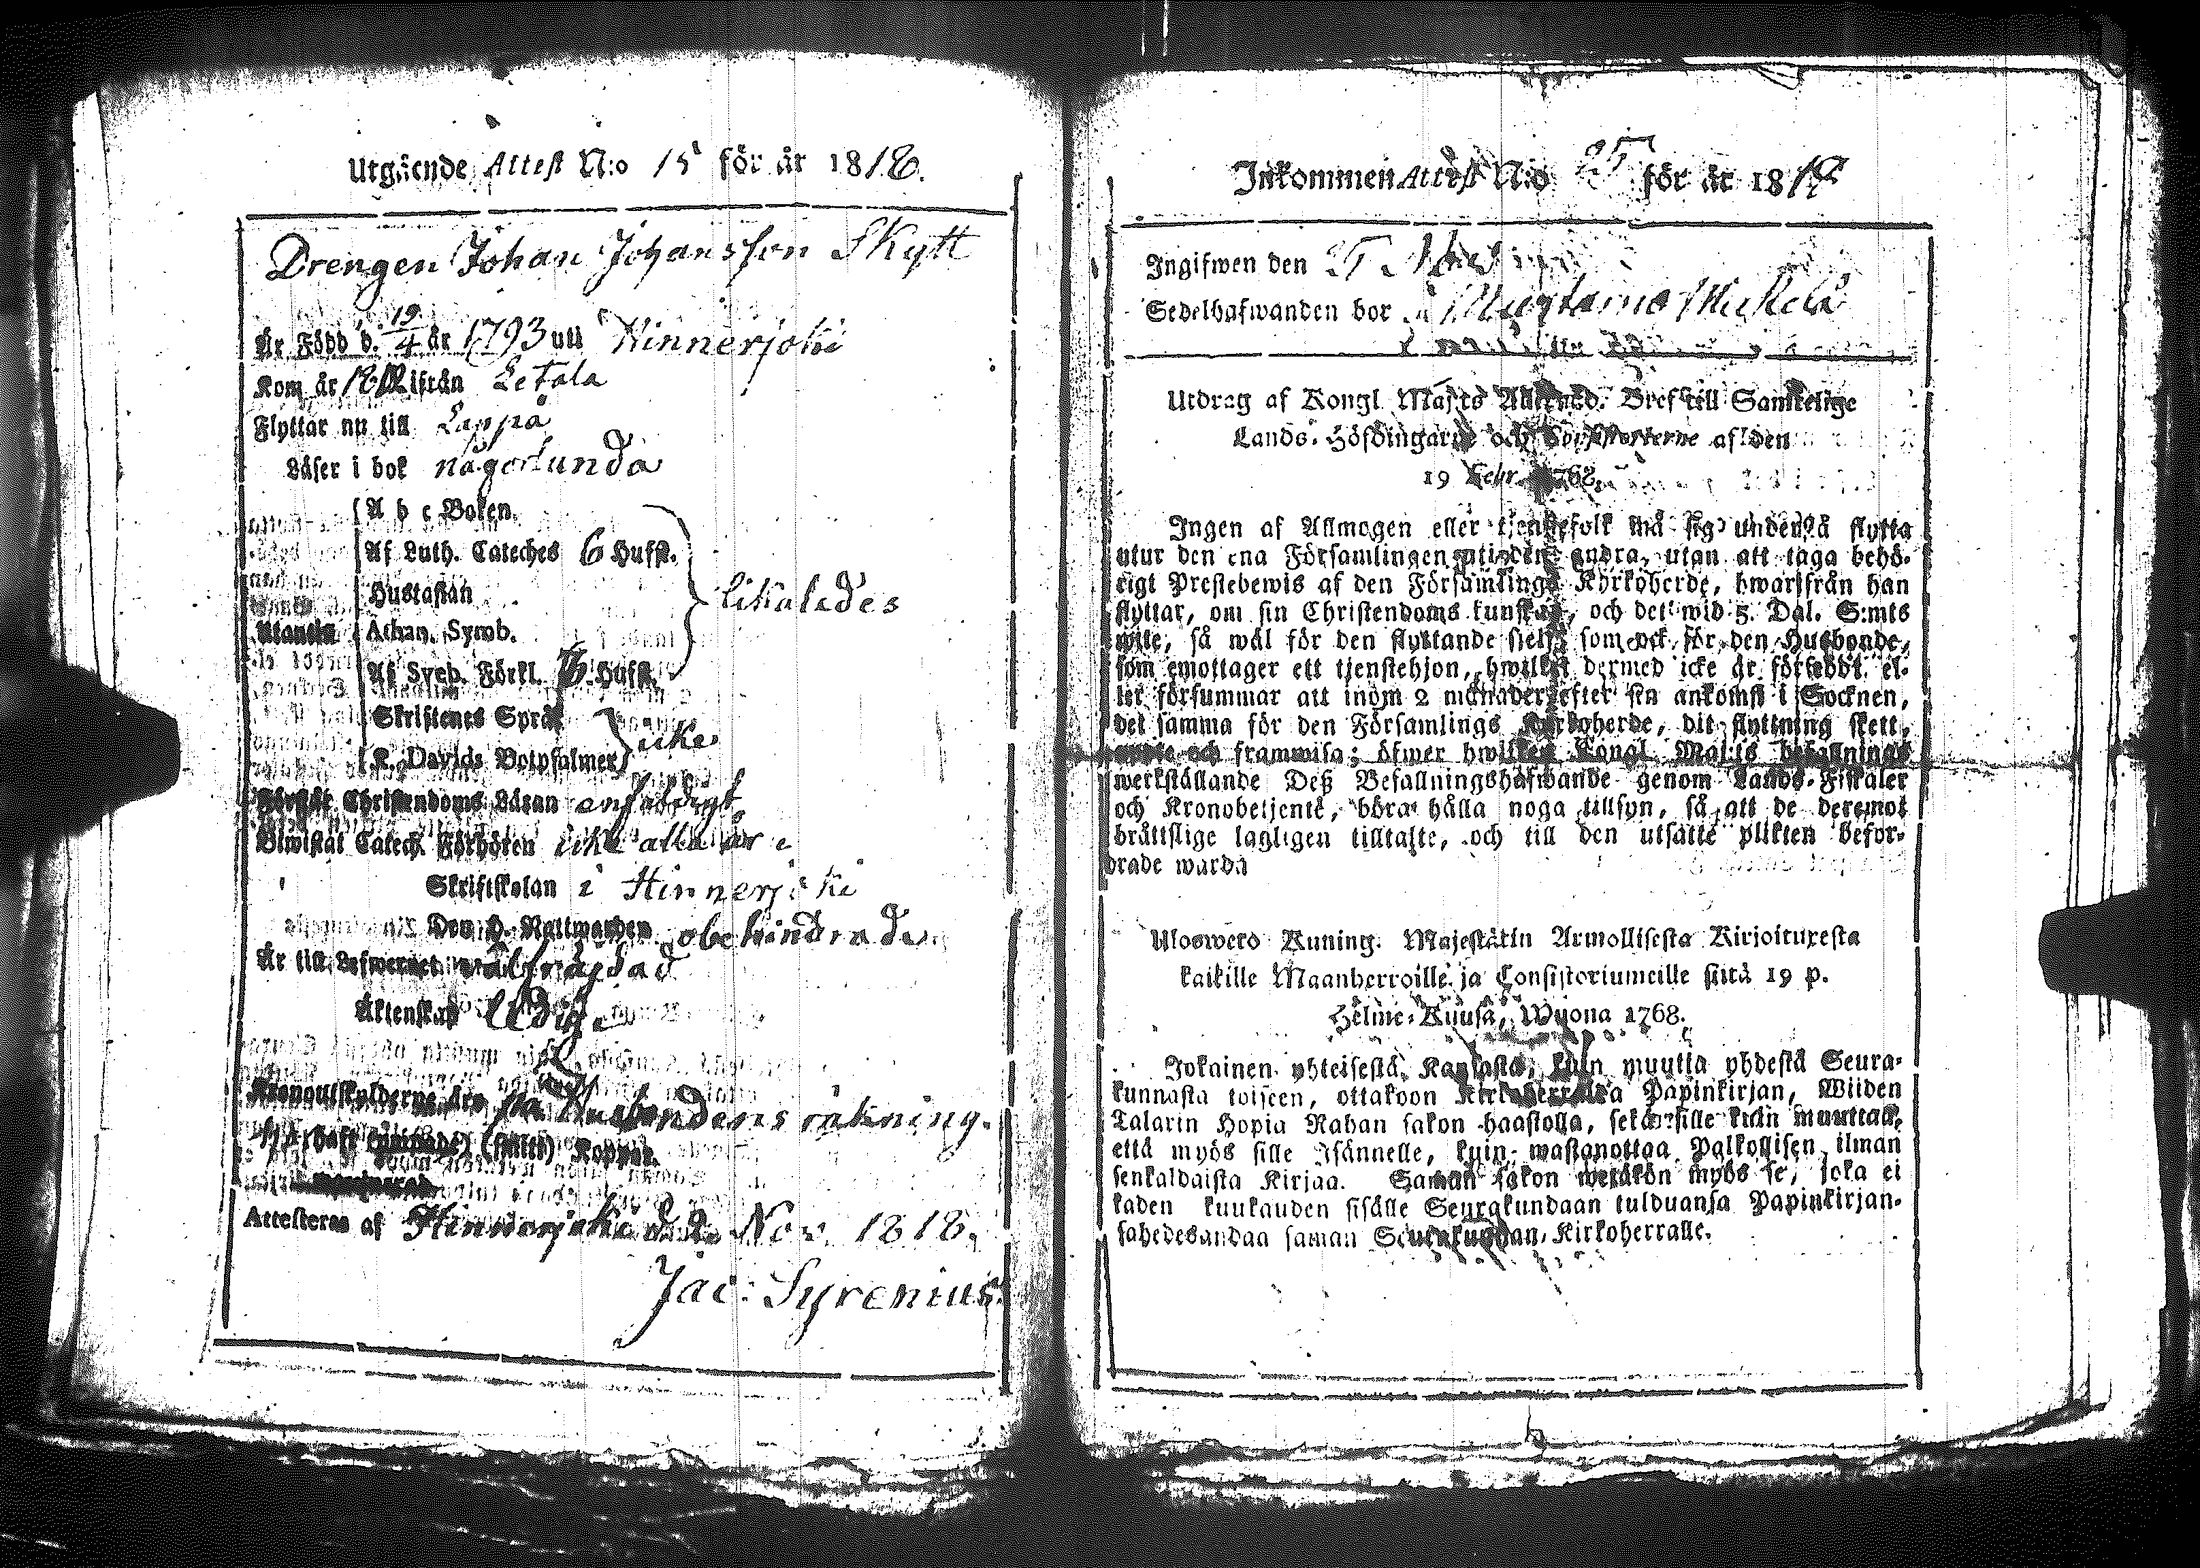 Utgående Attest N:o 15 för år 1818.
Drengen Johan Johansson Skytt
Är Född d. 19/4 år 1793 uti Hinnerjoki
Kom år 1812 ifrån Letala
Flyttar nu till Lappå
Läser i bok någorlunda
A b c Boken.
Af Luth. Cateches 6 Hufst.
Hustaflan likaledes
Utantil Athan. Symb.
Af Sveb. Förkl. Hufst.
Skriftenes Språk
K. Davids Botpsalmer icke
Förstår Christendoms Läran enfaldigt
Biwistat Catech. Förhören icke alla år
Skriftskolan i Hinnerjoki
Den H. Nattwarden obehindrad
Är till Lefwernet wälfrägdad
Äktenskap ledig
Kronoutskylderne äro på Husbondens räkning.
haft Koppor.
Attesteras af Hinnerjoki d. 2 Nov. 1818.
Jac: Syrenius
Inkommen Attest N:o 25 för år 18
Ingifwen den
Sedelhafwanden bor
Utdrag af Kongl Maj:ts Allernåd. Bref till Samtelige
Lands-Höfdingarne och Consistorierne af den
19 Febr. 1768.
Ingen af Allmogen eller tjenstefolk må sig understå flytta
utur den ena Församlingen uti den andra, utan att taga behö-
rigt Prestebewis af den Församlings Kyrkoherde, hwarifrån han
flyttar, om sin Christendoms kunskap, och det wid 5. Dal. S:mts
wite, så wäl för den flyttande sjelf, som ock för den Husbonde,
som emottager ett tjenstehjon, hwilket dermed icke är försedt el-
ler försummar att inom 2 månader efter sin ankomst i Socknen,
det samma för den Församlings Kyrkoherde, dit flyttning skett,
och framwisa; öfwer hwilken Kongl. Maj:ts befallnings
werkställande Deß Befallningshafwande genom Lands-Fiskaler
och Kronobetjente, böra hålla noga tillsyn, så att de deremot
bråttslige lagligen tilltalte, och till den utsatte plikten befor-
drade warda
Uloswero Kuning. Majestätin Armollisesta Kirjoituxesta
kaikille Maanherroille ja Consistoriumeille siitä 19 p.
Helme-Kuusa, Wuona 1768.
Jokainen yhteisestä Kansasta, kuin muutta yhdestä Seura-
kunnasta toiseen, ottakoon Kirkoherralta Papinkirjan, Wiiden
Talarin Hopia Rahan sakon haastolla, sekä sille kuin muuttaa,
että myös sille Isännelle, kuin wastanottaa Palkollisen ilman
senkaldaista Kirjaa. Saman sakon wetäkön myös se, joka ei
kaden kuukauden sisälle Seurakundaan tulduansa Papinkirjan-
sa hedesandaa saman Seurakundan Kirkoherralle.